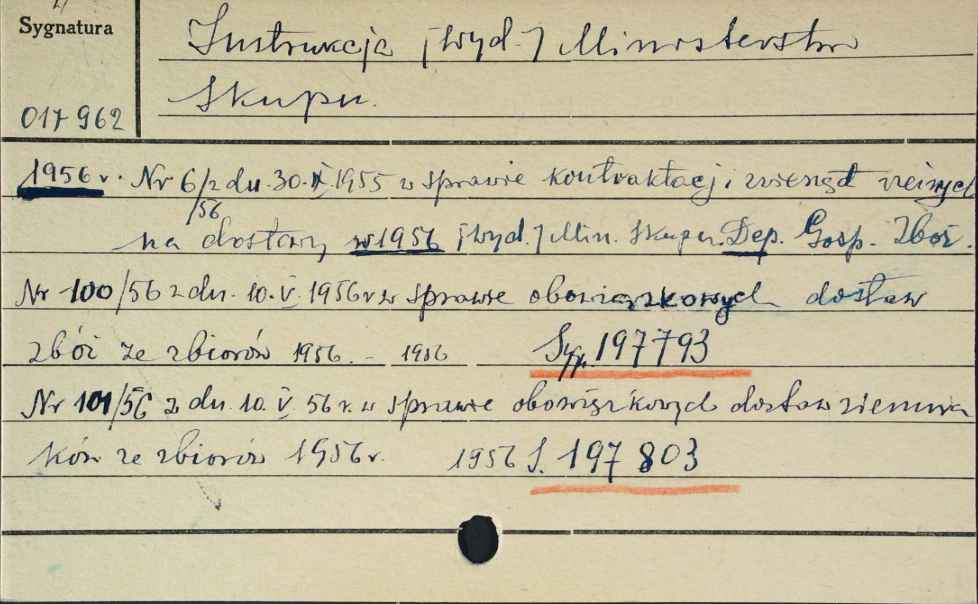 Sygnatura
017962
Instrukcja [Wyd.] Ministerstwo
Skupu.
1956 r. Nr 6/z dn. 30. 1955 w sprawie kontraktacji zwierząt
/56
na dostawy w 1956 [Wyd.] Min. Skupu. Dep. Gosp. Zboż.
Nr 100/56 z dn. 10.V.1956 r w sprawie obowiązkowych dostaw
zbóż ze zbiorów 1956. – 1956 Syg. 197793
Nr 101/56 z dn. 10.V 56 r. w sprawie obowiązkowych dostaw ziemnia
ków ze zbiorów 1956 r. 1956 S. 197803